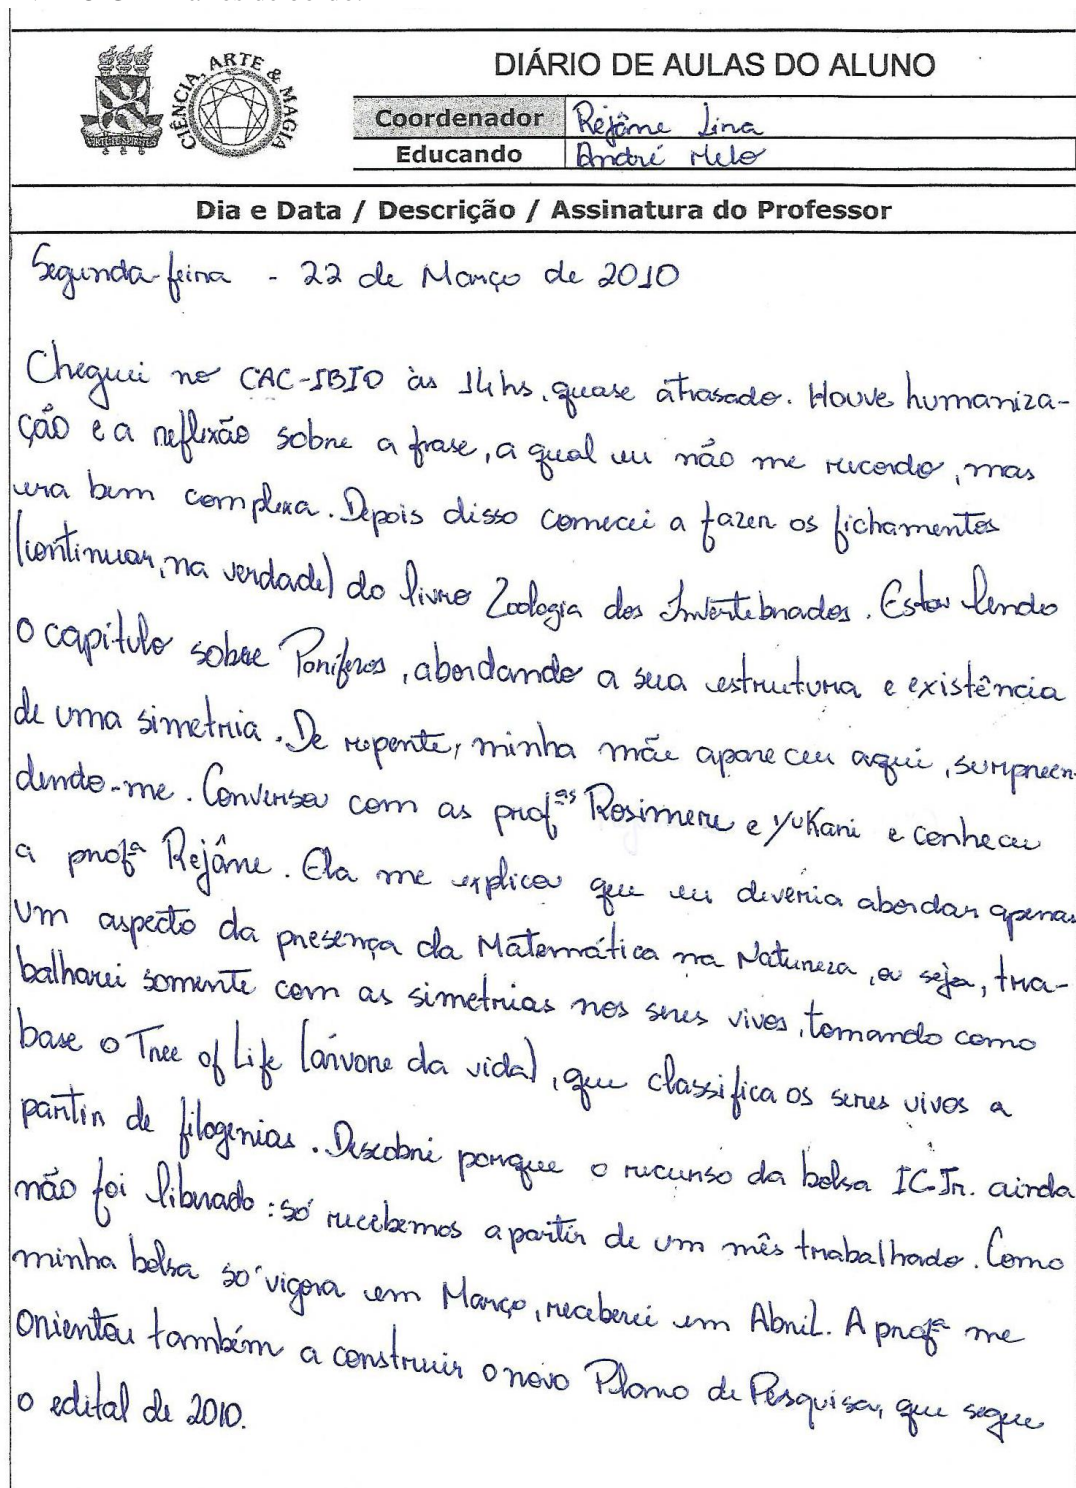 CIÊNCIA, ARTE & MAGIA
DIÁRIO DE AULAS DO ALUNO
Coordenador Rejâne Lira
Educando André Melo
Dia e Data / Descrição / Assinatura do Professor
Segunda-feira - 22 de Março de 2010
Cheguei no CAC-IBIO às 14hs, quase atrasado. Houve humaniza-
ção e a reflexão sobre a frase, a qual eu não me recordo, mas
era bem complexa. Depois disso comecei a fazer os fichamentos
(continuar, na verdade) do livro Zoologia dos Invertebrados. Estou lendo
o capítulo sobre Poríferos, abordando a sua estrutura e existência
de uma simetria. De repente, minha mãe apareceu aqui, surpreen-
dendo-me. Conversou com as profªs Rosimere e Yukari e conheceu
a profª Rejâne. Ela me explicou que eu deveria abordar apenas
um aspecto da presença da Matemática na Natureza, ou seja, tra-
balharei somente com as simetrias nos seres vivos, tomando como
base o Tree of Life (árvore da vida), que classifica os seres vivos a
partir de filogenias. Descobri porque o recurso da bolsa IC-Jr. ainda
não foi liberado: só recebemos a partir de um mês trabalhado. Como
minha bolsa só vigora em Março, receberei em Abril. A profª me
orientou também a construir o novo Plano de Pesquisa, que segue
o edital de 2010.